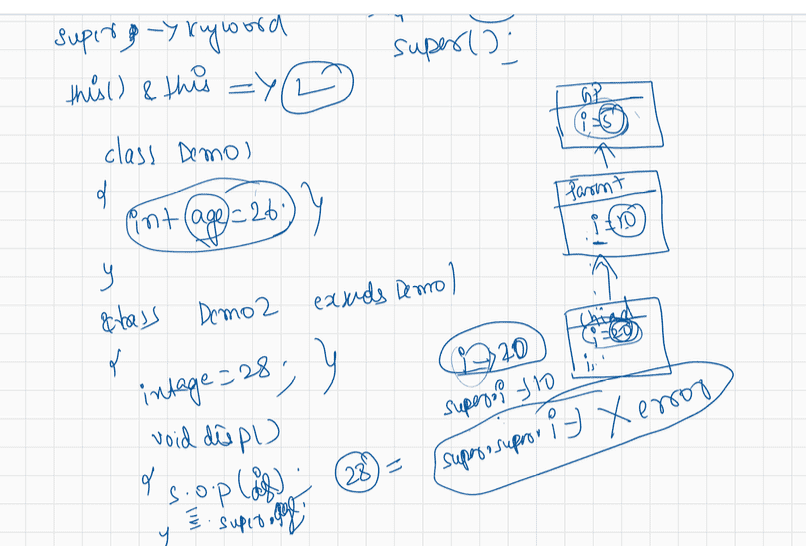 super → keyword
super();
this() & this =>
class Demo1
{
int age = 26;
}
class Demo2 extends Demo1
{
int age = 28;
void disp()
{
s.o.p(age);
super.age;
}
28 =
GP
i = 5
Parent
i = 10
Child
i = 20
i → 20
super.i → 10
super.super.i → X error